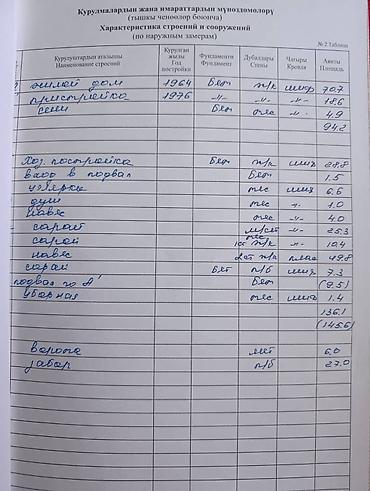 Курулмалардын жана имараттардын мүнөздөмөлөрү
(тышкы ченөөлөр боюнча)
Характеристика строений и сооружений
(по наружным замерам)
№ 2 Таблица
Курулуштардын аталышы
Наименование строений
Курулган жылы
Год постройки
Фундаменти
Фундамент
Дубалдары
Стены
Чатыры
Кровля
Аянты
Площадь
жилой дом 1964 Бет п/к шиф 70.7
пристройка 1976 -"- -"- -"- 18.6
сени Бет тес -"- 4.9
94.2
Хоз. постройка Бет п/к шиф 28.8
вход в подвал Бет 1.5
тес шиф 6.6
душ тес 1.0
навес тес -"- 4.0
сарай -"- 25.3
сарай п/к 10.4
навес 49.8
сарай Бет п/б шиф 7.3
подвал Бет (9.5)
уборная тес шиф 1.4
136.1
(145.6)
ворота мет 6.0
забор п/б 27.0